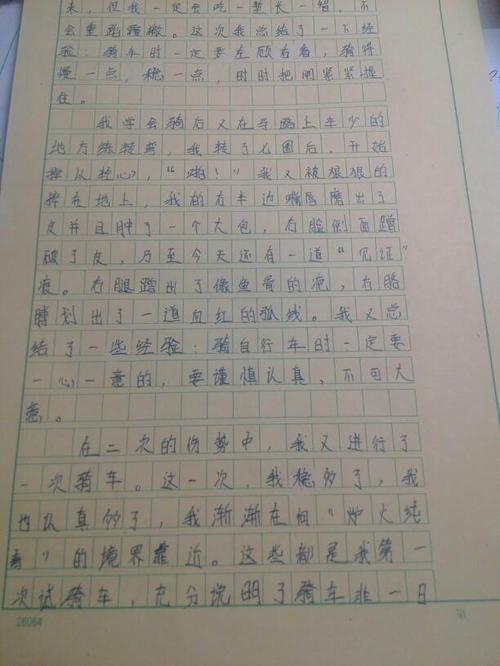 来，但我一定会吃一堑长一智，不
会重蹈覆辙。这次我总结了一下经
验：骑车时一定要左顾右看，骑得
慢一点，稳一点，时时把闸紧紧握
住。
我学会骑后又在马路上车少的
地方练转弯，我转了七圈后，开始
掉以轻心，“啪！”我又被狠狠的
摔在地上，我的右半边嘴唇磨出了
皮并且肿了一个大包，右脸侧面蹭
破了皮，乃至今天还有一道“见证”
痕。右腿蹭出了像鱼骨的疤，右胳
膊划出了一道血红的弧线。我又总
结了一些经验：骑自行车时一定要
一心一意的，要谨慎认真，不可大
意。
在二次的伤势中，我又进行了
一次骑车。这一次，我稳多了，我
也认真多了，我渐渐在向“炉火纯
青”的境界靠近。这些都是我第一
次试骑车，充分说明了骑车非一日
26064